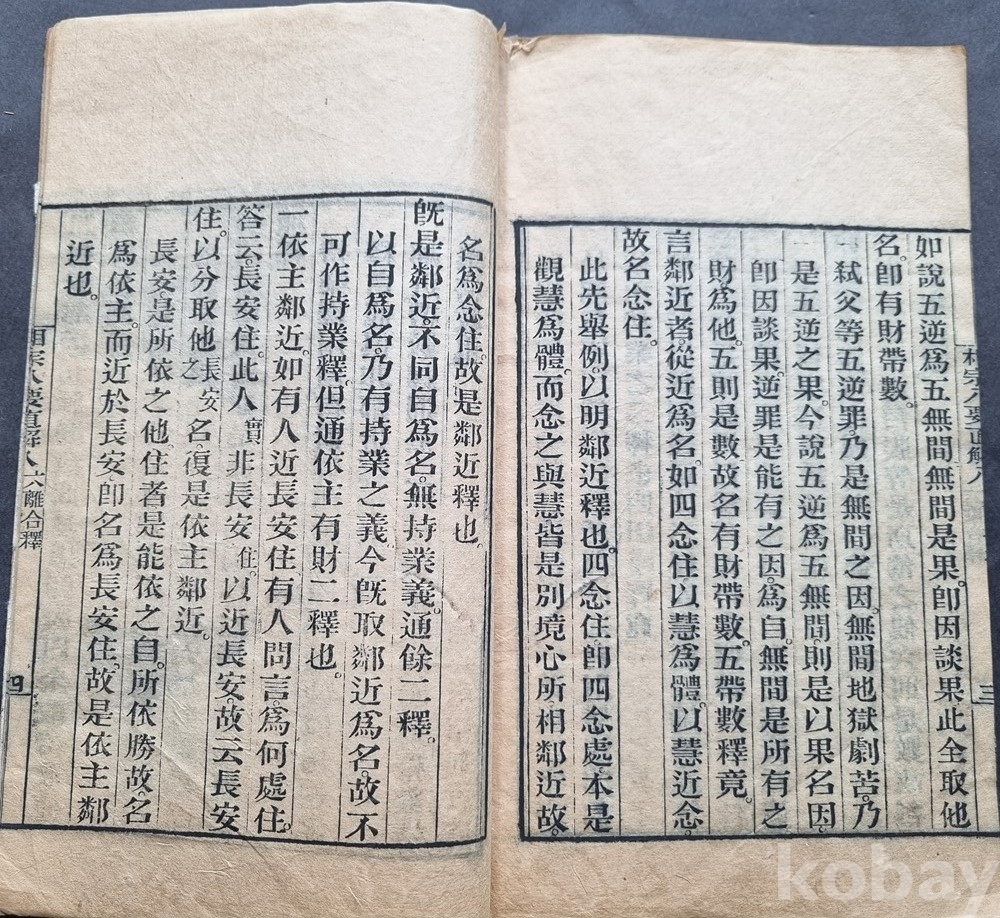 如說五逆爲五無間無間是果。卽因談果此全取他
名。卽有財帶數。
弑父等五逆罪。乃是無間之因。無間地獄劇苦。乃
是五逆之果。今說五逆爲五無間。則是以果名因。
卽因談果。逆罪是能有之因。爲自。無間是所有之
財。爲他。五則是數。故名有財帶數。五帶數釋竟。
言鄰近者。從近爲名。如四念住以慧爲體。以慧近念。
故名念住。
此先舉例。以明鄰近釋也。四念住卽四念處。本是
觀慧爲體。而念之與慧皆是別境心所。相鄰近故。
三
名爲念住。故是鄰近釋也。
旣是鄰近。不同自爲名。無持業義。通餘二釋。
以自爲名。乃有持業之義。今旣取鄰近爲名。故不
可作持業釋。但通依主有財二釋也。
一依主鄰近。如有人近長安住。有人問言。爲何處住。
答云長安住。此人實非長安住。以近長安。故云長安
住。以分取他之長安名。復是依主鄰近。
長安是所依之他。住者是能依之自。所依勝故。名
爲依主。而近於長安。卽名爲長安住。故是依主鄰
近也。
相宗八要直解八 六離合釋 四
kobay